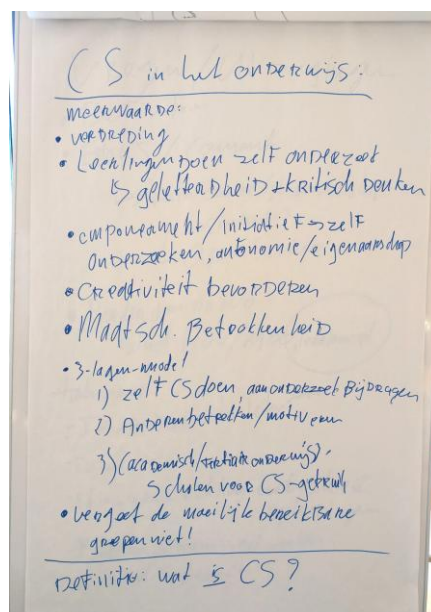 CS in het onderwijs:
meerwaarde:
• verbreding
• Leerlingen doen zelf onderzoek
↳ geletterdheid + kritisch denken
• empowerment/initiatief → zelf
onderzoeken, autonomie/eigenaarschap
• Creativiteit bevorderen
• Maatsch. Betrokkenheid
• 3-lagen-model
1) zelf CS doen, aan onderzoek Bijdragen
2) Anderen betrekken/motiveren
3) (academisch/tertiair onderwijs).
Scholen voor CS-gebruik
• vergeet de moeilijk bereikbare
groepen niet!
Definitie: wat is CS?